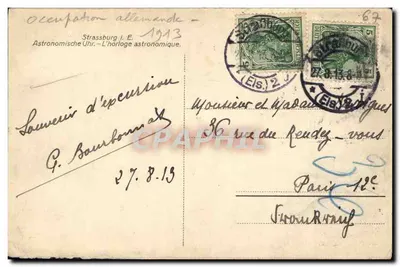 occupation allemande -
1913
67
Strassburg i. E.
Astronomische Uhr. - L'horloge astronomique.
Strassburg
(Els.) 2
27.8.13.8-
* (Els.) 2
5
Souvenir d'excursion
G.
27.8.13
Monsieur et Madame
36 rue du Rendez-vous
Paris 12e
Frankreich
CPAPHIL